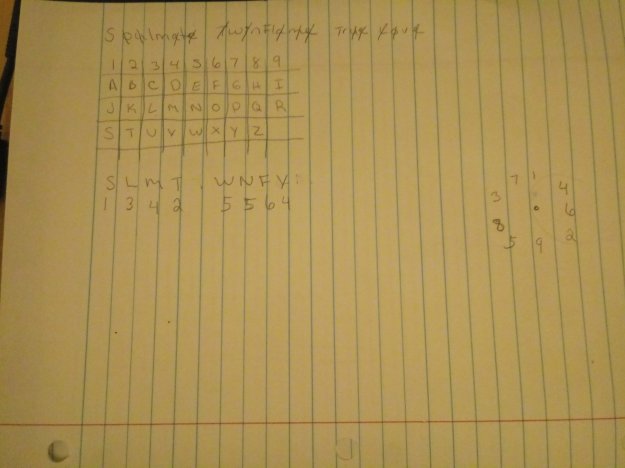 1 2 3 4 5 6 7 8 9
A B C D E F G H I
J K L M N O P Q R
S T U V W X Y Z
S L M T . W N F V
1 3 4 2 5 5 6 4
7 1 4
3 6
8 2
5 9